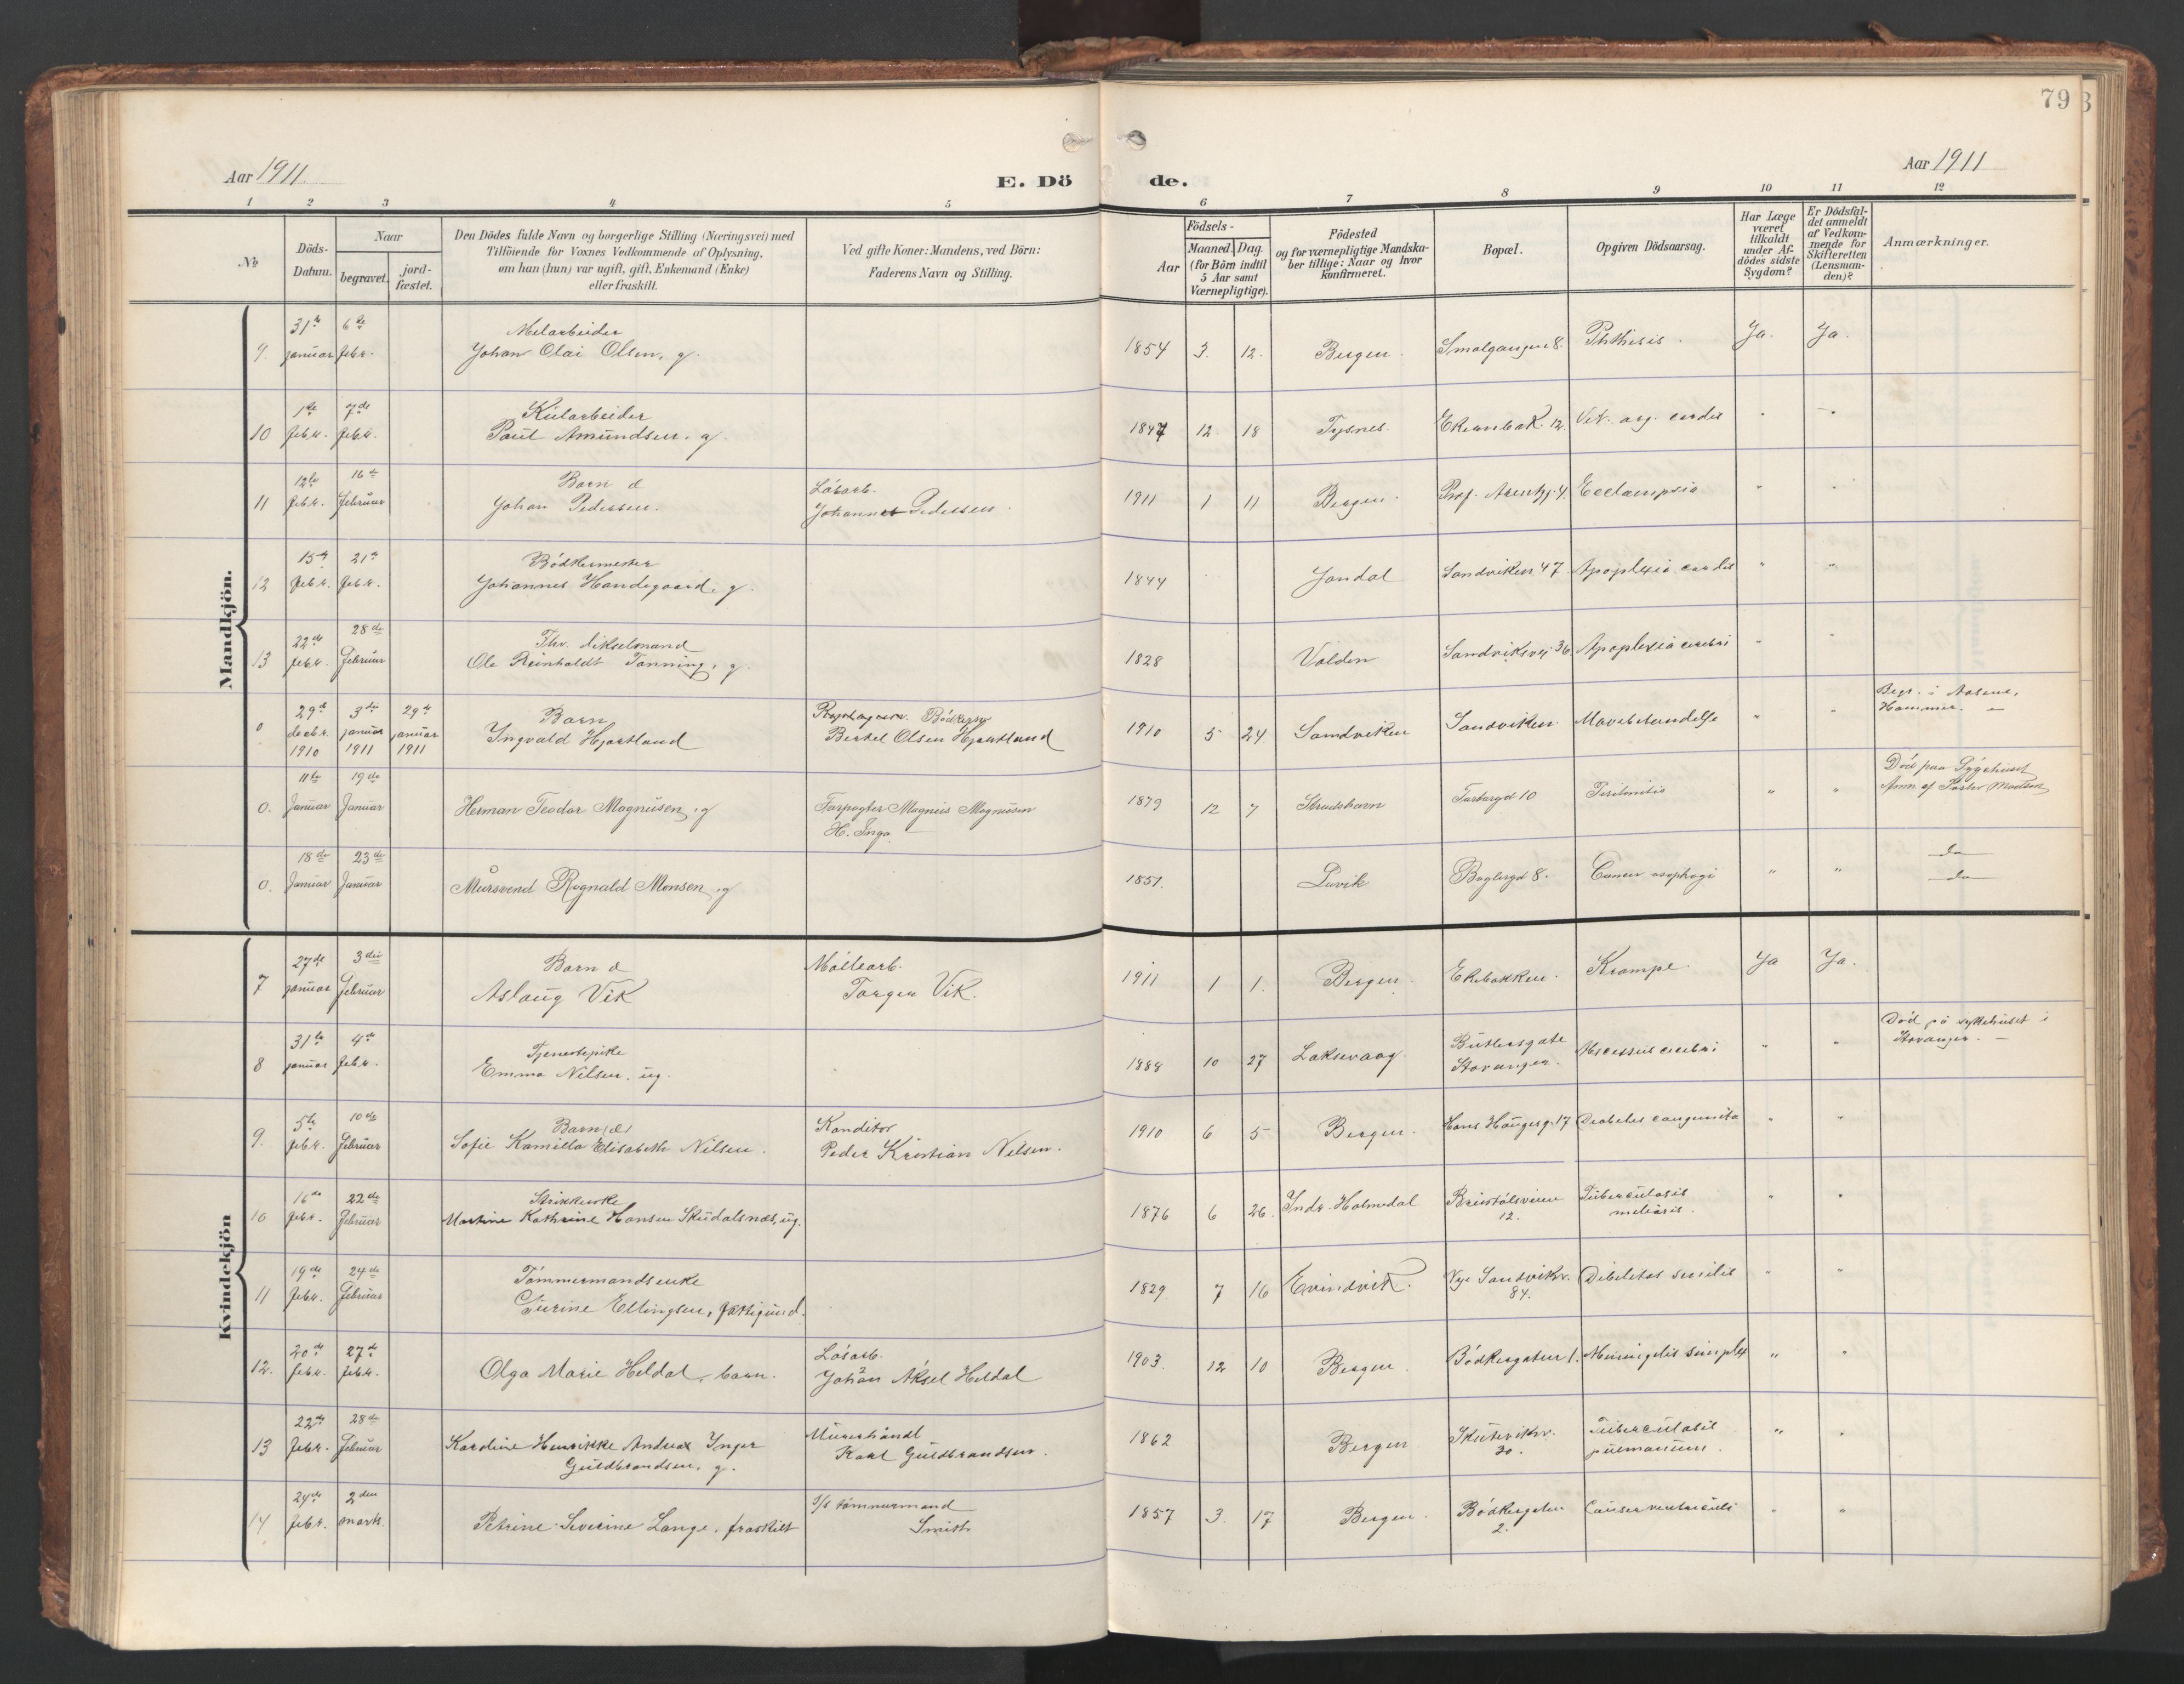 79
Aar 1911.
E. Dö
de.
Aar 1911
1 2 3 4 5 6 7 8 9 10 11 12
No
Döds-
Datum.
Naar
begravet.
jord-
fæstet.
Den Dödes fulde Navn og borgerlige Stilling (Næringsvei) med
Tilföiende for Voxnes Vedkommende af Oplysning,
om han (hun) var ugift, gift, Enkemand (Enke)
eller fraskilt.
Ved gifte Koner: Mandens, ved Börn:
Faderens Navn og Stilling.
Födsels-
Aar
Maaned Dag
(for Börn indtil
5 Aar samt
Værnepligtige).
Födested
og for værnepligtige Mandska-
ber tillige: Naar og hvor
Konfirmeret.
Bopæl.
Opgiven Dödsaarsag.
Har Læge
været
tilkaldt
under Af-
dödes sidste
Sygdom?
Er Dödsfal-
det anmeldt
af Vedkom-
mende for
Skifteretten
(Lensman-
den)?
Anmærkninger.
Mandkjön.
9. 31te januar 6te febr.
Melarbeider
Johan Olai Olsen, g.
1854 3. 12. Bergen. Smalgangen 8. Phthisis. Ja. Ja.
10 1ste febr. 7de febr.
Kularbeider
Paul Amundsen. g.
1847 12. 18 Tysnes. Ekrenbak. 12. Vit. org. cordis
11 12te febr. 16de Februar
Barn d
Johan Pedersen.
Lösarb.
Johannes Pedersen.
1911 1 11 Bergen. Prof. 4. Eclampsia " "
12 15de febr. 21de febr.
Bödkermester
Johannes Handegaard. g.
1844 Jondal Sandviken 47 Apoplexia cordis " "
13 22de febr. 28de Februar
Fhv.
Ole Reinholdt Tonning, g.
1828 Volden Sandviksvei 36. Apoplexia cerebri " "
0 29de decbr. 1910 3die januar 1911 29de januar 1911
Barn
Ingvald Hjortland
Bertel Olsen Hjortland
1910 5 24 Sandviken Sandviken. Mavebetændelse " "
Begr. i Aasene,
Hammer. —
0. 11te Januar 19de Januar
Herman Teodor Magnusen, g
Magnus Magnusen
H. Inga —
1879 12 7 Strudshavn 10 Peritonitis " "
Död paa Sygehuset
Anm. af Pastor Madsen
0. 18de Januar 23de Januar
Mursvend Rognald Monsen, g
1851. Lavik Boglergd 8. Cancer oesophagi " "
do
do
Kvindekjön
7 27de januar 3die Februar
Barn d
Aslaug Vik
Möllearb.
Torger Vik.
1911 1 1. Bergen. Ekrebakken. Krampe. Ja Ja.
8 31te januar 4de febr.
Tjenestepike
Emma Nilsen. ug.
1888 10 27 Laksevaag. Butlersgate
Stavanger. Abscessus cerebri " "
Död på sykehuset i
Stavanger. —
9. 5te febr. 10de Februar
Barn (d)
Sofie Kamilla Elisabeth Nilsen.
Konditor
Peder Kristian Nilsen.
1910 6 5 Bergen. Hans Haugesg. 17 Diabetes congenita " "
10 16de febr. 22de Februar
Strikkerske
Martine Kathrine Hansen Skudalsnæs, ug.
1876 6 26. Indr. Holmedal 12. Tuberculosis
miliaris. " "
11 19de febr. 24de Februar
Tömmermandsenke
Turine Ellingsen, fattigund.
1829 7 16 Evindvik. Nye Sandvikv.
84. Debilitas senilis " "
12. 20de febr. 27de febr.
Olga Marie Heldal, barn.
Lösarb.
Johan Aksel Heldal
1903. 12 10 Bergen. Bödkergaten 1. Meningitis simplex " "
13 22de febr. 28de Februar
Karoline Henrikke Andrea Inger
Guldbrandsen, g.
Murerhåndl
Karl Guldbrandsen.
1862 Bergen Skutevikv.
30. Tuberculosis
pulmonum. " "
14 24de febr. 2den marts.
Petrine Severine Lange, fraskilt
F/s tömmermand
Smith
1857 3. 17 Bergen. Bödkergaten
2. Cancer ventriculi " "